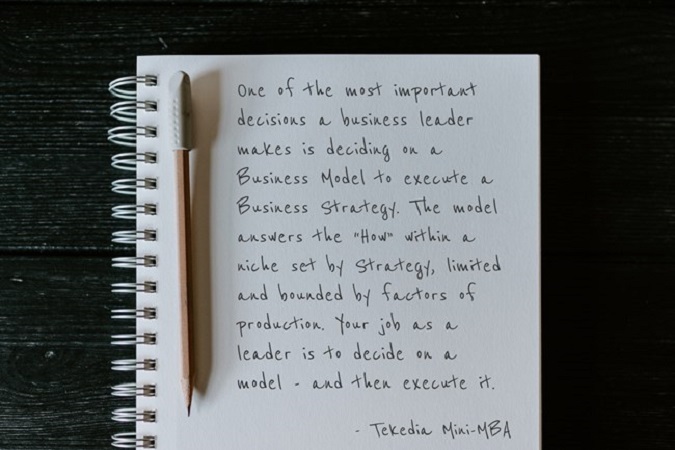 One of the most important
decisions a business leader
makes is deciding on a
Business Model to execute a
Business Strategy. The model
answers the "How" within a
niche set by Strategy, limited
and bounded by factors of
production. Your job as a
leader is to decide on a
model - and then execute it.
- Tekedia Mini-MBA